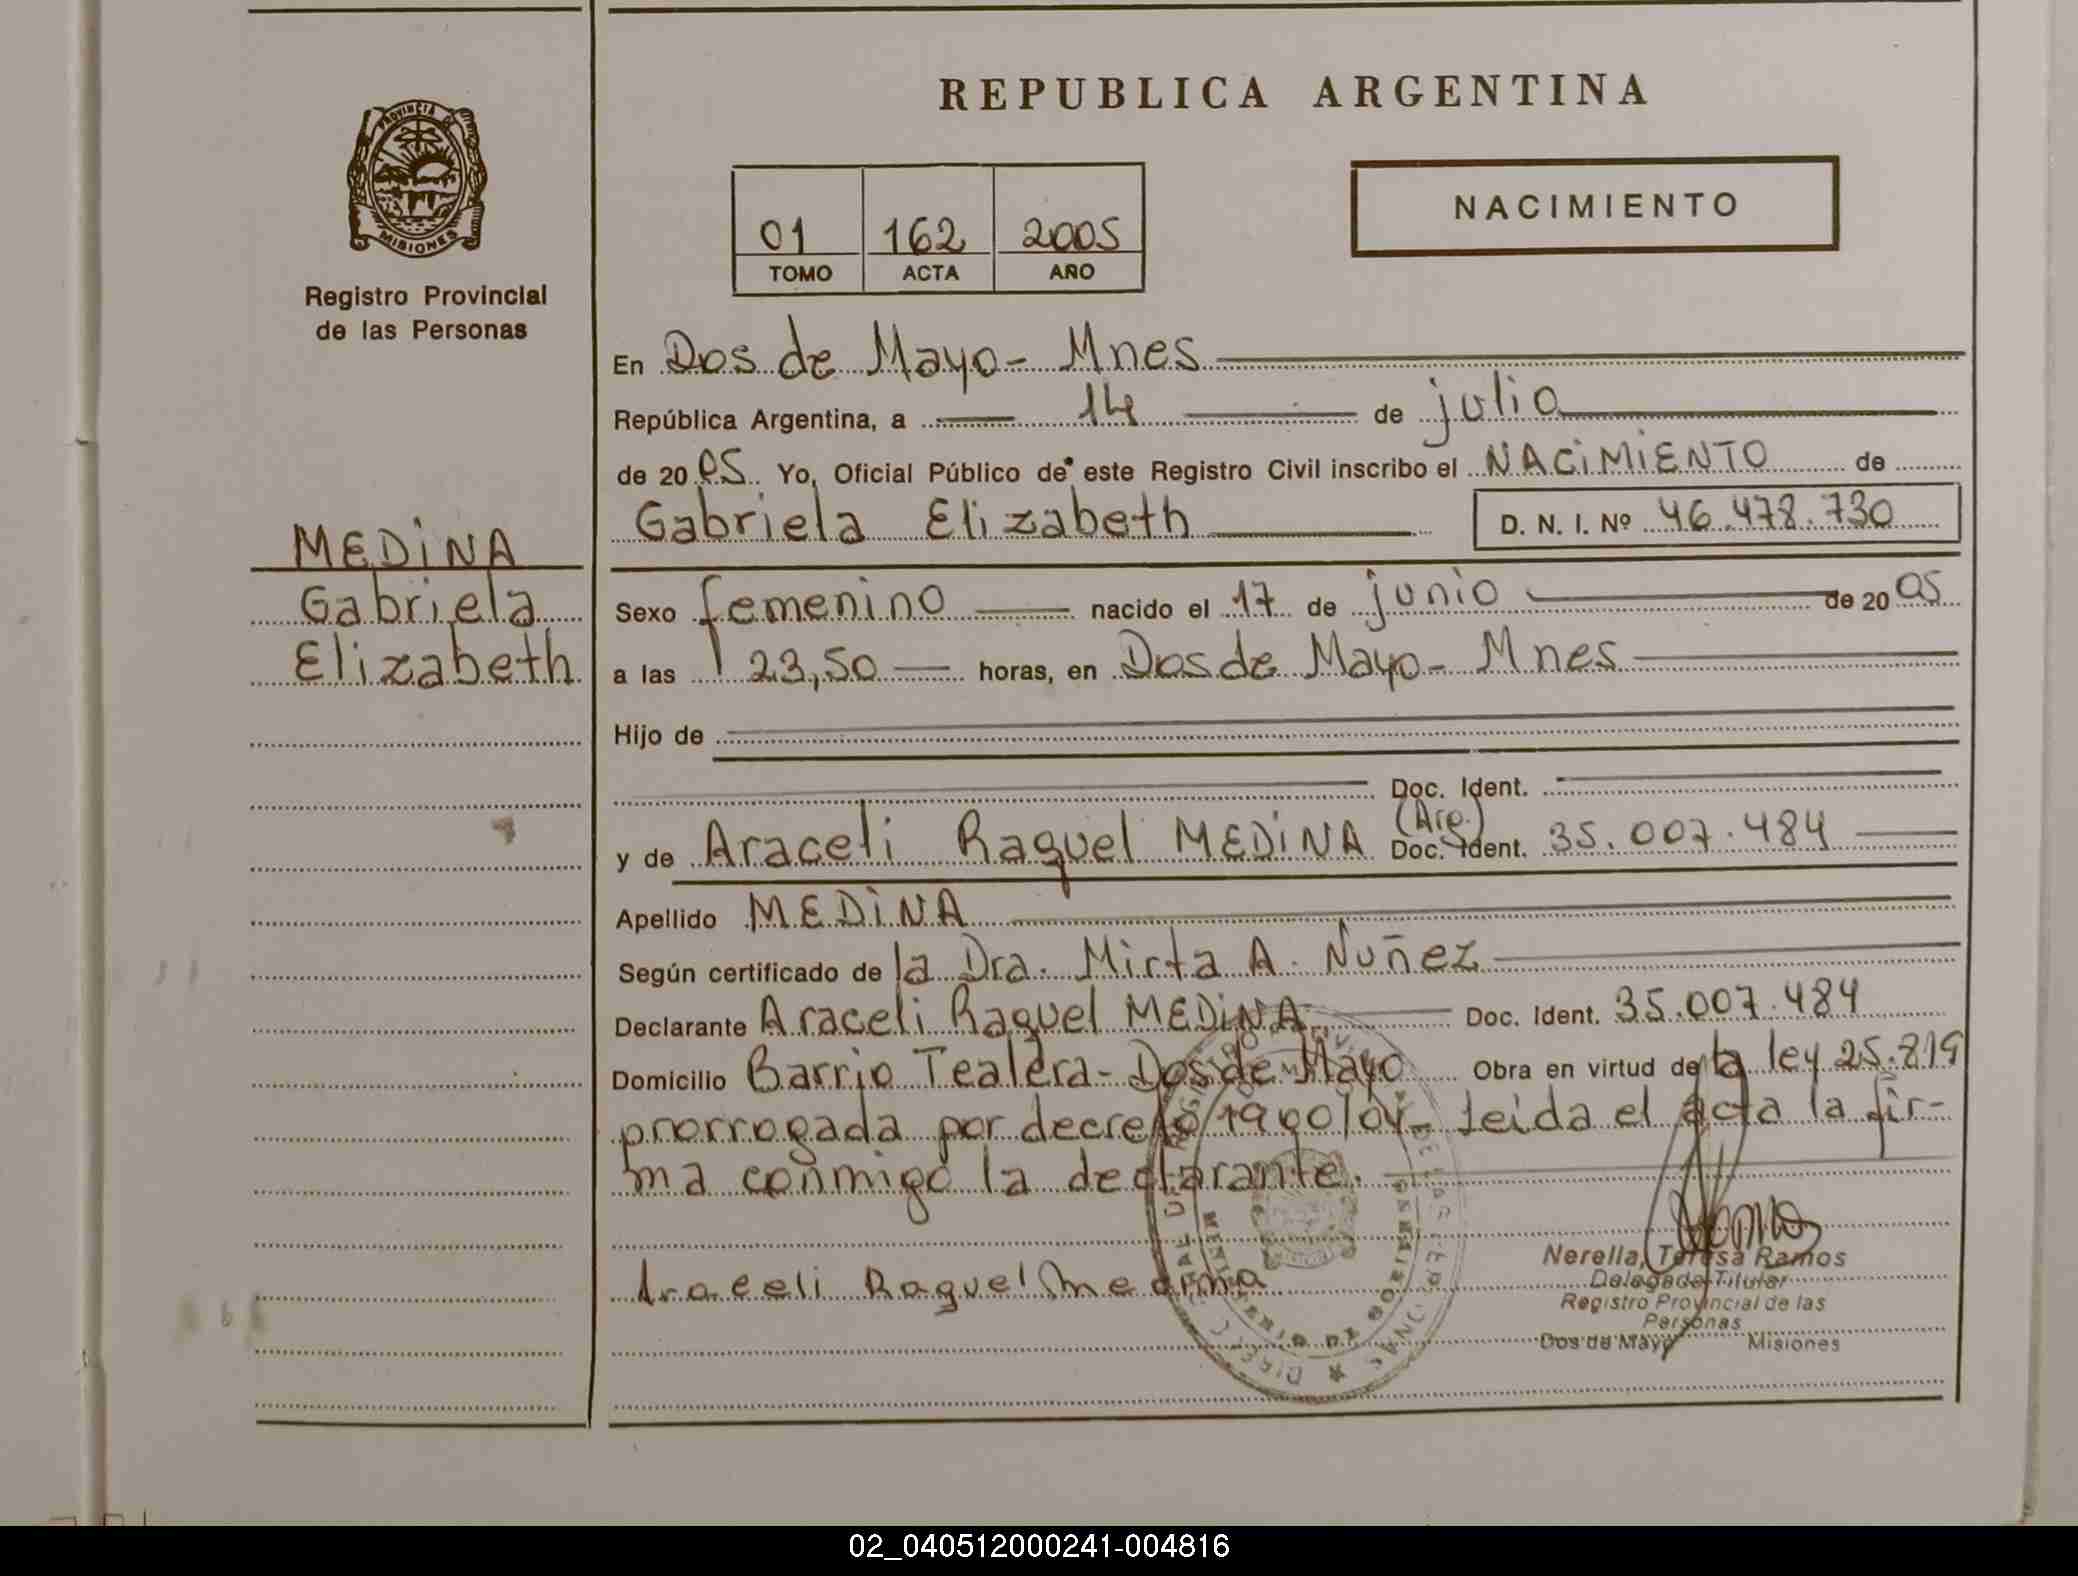 REPUBLICA ARGENTINA
PROVINCIA DE
MISIONES
Registro Provincial
de las Personas
01 162 2005
TOMO ACTA AÑO
NACIMIENTO
En Dos de Mayo - Mnes
República Argentina, a 14 de julio
de 20 05 Yo, Oficial Público de este Registro Civil inscribo el NACIMIENTO de
Gabriela Elizabeth D. N. I. Nº 46.478.730
MEDINA
Gabriela
Elizabeth
Sexo femenino nacido el 17 de junio de 20 05
a las 23,50 horas, en Dos de Mayo - Mnes
Hijo de
Doc. Ident.
(Arg.)
y de Araceli Raquel MEDINA Doc. Ident. 35.007.484
Apellido MEDINA
Según certificado de la Dra. Mirta A. Nuñez
Declarante Araceli Raquel MEDINA Doc. Ident. 35.007.484
Domicilio Barrio Tealera - Dos de Mayo Obra en virtud de la ley 25.819
prorrogada por decreto 1900/04 - Leida el acta la fir-
ma conmigo la declarante.
Araceli Raquel medina
Nerella, Teresa Ramos
Delegada Titular
Registro Provincial de las
Personas
Dos de Mayo Misiones
02_040512000241-004816